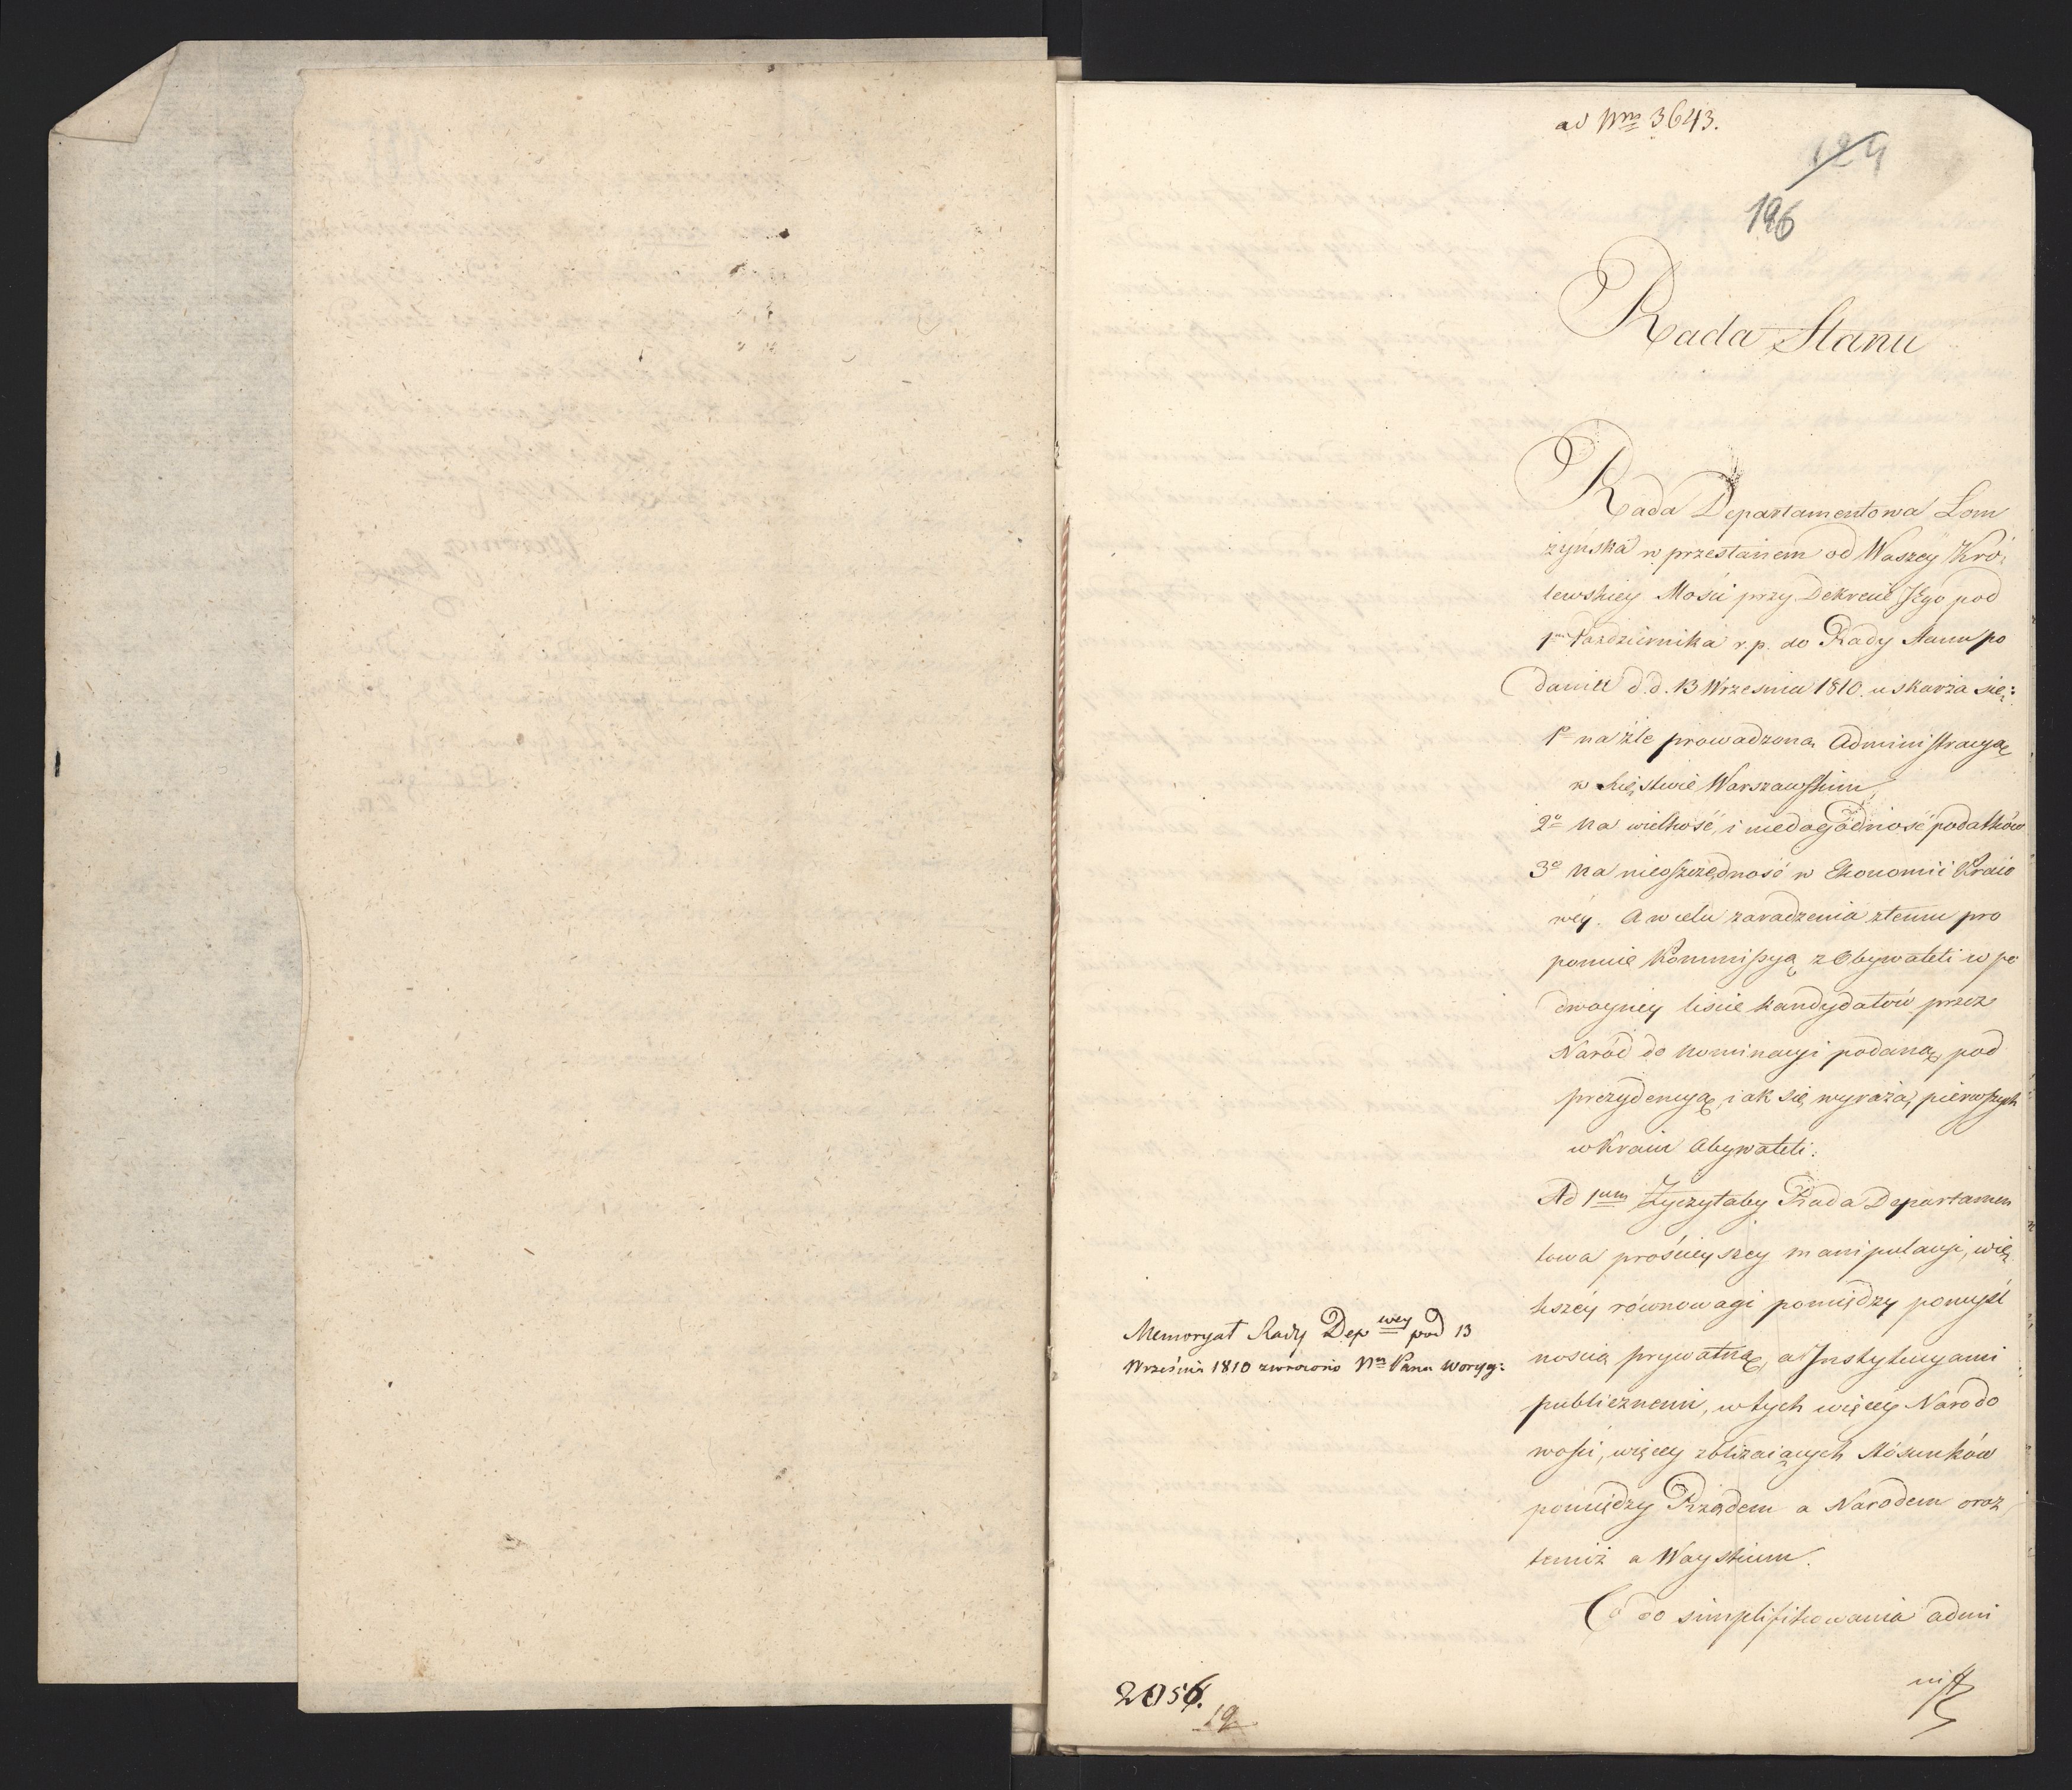 ad Nrm 3643.
129
196
Rada Stanu
Rada Departamentowa Łom
żyńska w przesłanem od Waszey Kró,
lewskiey Mości przy Dekrecie Jego pod
1m Października r.p. do Rady Stanu po
daniu d.d. 13 Września 1810. uskarża się:
1o na źle prowadzoną administracyą
w Xięstwie Warszawskim,
2o na wielkość, i niedogodność podatków
3o na nieoszczędność w Ekonomii Kraio
wéy. A w celu zaradzenia złemu pro
ponuie Kommissyą z Obywateli w po
dwoyney liście kandydatów przez
Naród do nominacyi podaną, pod
prezydencyą, iak się wyraża, pierwszych
w Kraiu Obywateli.
Ad 1um Życzyłaby Rada Departamen
towa prościeyszey manipulacyi, wię,
kszéy równowagi pomiędzy pomyśl
nością prywatną, a Instytucyami
publicznemi, w tych więcéy Narodo
wości, więcey zbliżaiących stósunków
pomiędzy Rządem a Narodem oraz
temiż a Woyskiem.
Co do simplifikowania admi
nist
Memoryał Rady Depwey pod 13
Września 1810 zwrócono Nn Panu w oryg:
2056.
19